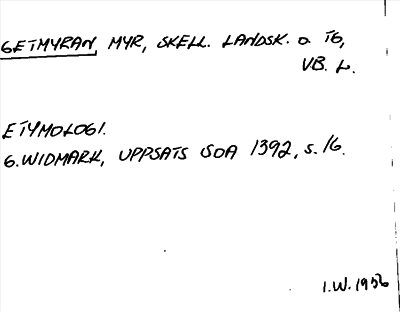 GETMYRAN, MYR, SKELL. LANDSK. O TG,
VB. L.
ETYMOLOGI.
G. WIDMARK, UPPSATS SOA 1392, S. 16.
I.W. 1956